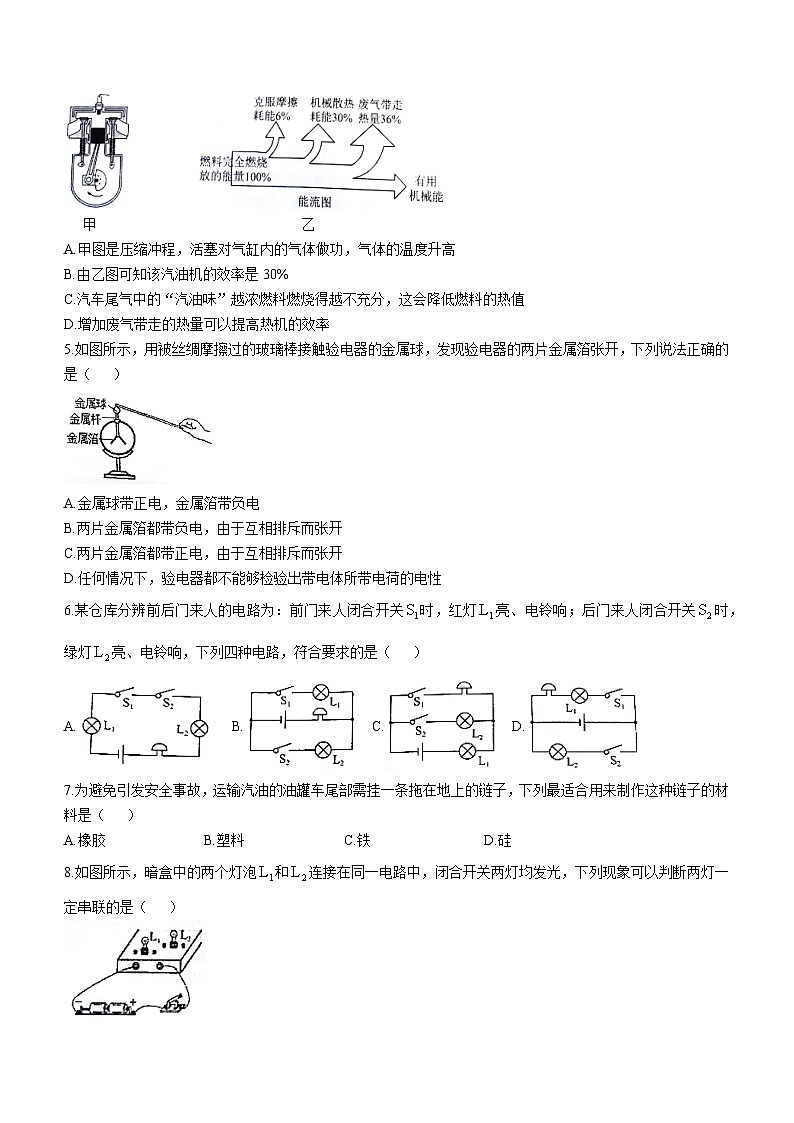 克服摩擦 机械散热 废气带走
耗能6% 耗能30% 热量36%
燃料完全燃烧
放的能量100%
有用
机械能
能流图
甲 乙
A.甲图是压缩冲程，活塞对气缸内的气体做功，气体的温度升高
B.由乙图可知该汽油机的效率是 30%
C.汽车尾气中的“汽油味”越浓燃料燃烧得越不充分，这会降低燃料的热值
D.增加废气带走的热量可以提高热机的效率
5.如图所示，用被丝绸摩擦过的玻璃棒接触验电器的金属球，发现验电器的两片金属箔张开，下列说法正确的
是（ ）
金属球
金属杆
金属箔
A.金属球带正电，金属箔带负电
B.两片金属箔都带负电，由于互相排斥而张开
C.两片金属箔都带正电，由于互相排斥而张开
D.任何情况下，验电器都不能够检验出带电体所带电荷的电性
6.某仓库分辨前后门来人的电路为：前门来人闭合开关S₁时，红灯L₁亮、电铃响；后门来人闭合开关S₂时，
绿灯L₂亮、电铃响，下列四种电路，符合要求的是（ ）
A. S₁ S₂ L₁ L₂
B. S₁ L₁ S₂ L₂
C. S₁ S₂ L₂ L₁
D. L₁ S₁ L₂ S₂
7.为避免引发安全事故，运输汽油的油罐车尾部需挂一条拖在地上的链子，下列最适合用来制作这种链子的材
料是（ ）
A.橡胶 B.塑料 C.铁 D.硅
8.如图所示，暗盒中的两个灯泡L₁和L₂连接在同一电路中，闭合开关两灯均发光，下列现象可以判断两灯一
定串联的是（ ）
L₁ L₂
− +